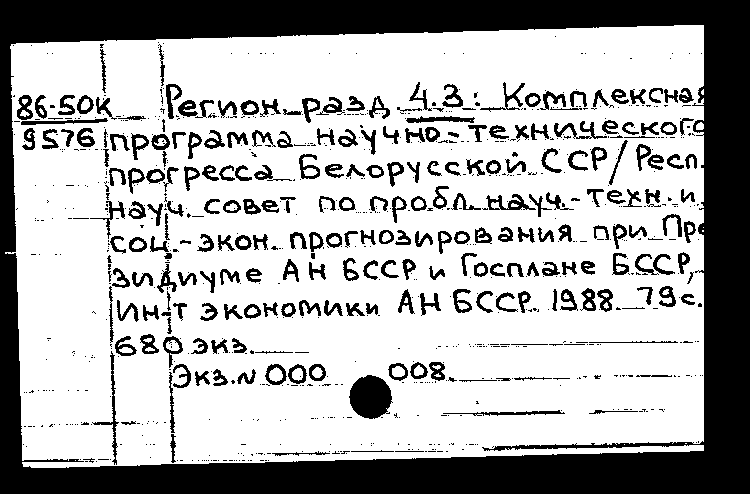 86-50К Регион. разд. 4.3: Комплексная
9576 программа научно-технического
прогресса Белорусской ССР/Респ.
науч. совет по пробл. науч.-техн. и
соц.-экон. прогнозирования при Пре
зидиуме АН БССР и Госплане БССР,
Ин-т экономики АН БССР. 1988. 79с.
680 экз.
Экз. N 000 008.